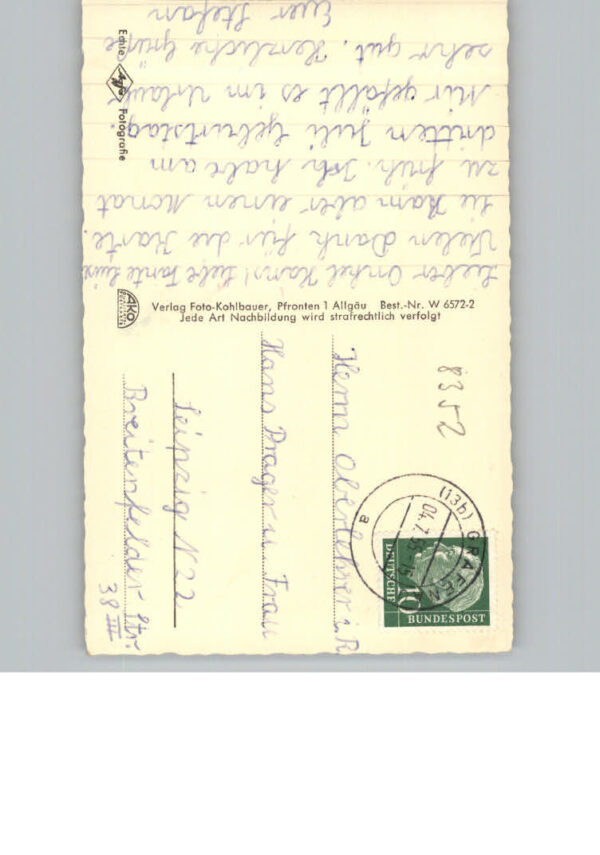 Lieber Onkel Hans! Liebe Tante
Vielen Dank für die Karte.
Sie kam aber einen Monat
zu früh. Ich habe am
dritten Juli Geburtstag
Mir gefällt es im Urlaub
sehr gut. Herzliche Grüße
Euer Stefan
Echte Agfa Fotografie
AKO
Verlag Foto-Kohlbauer, Pfronten 1 Allgäu Best.-Nr. W 6572-2
Jede Art Nachbildung wird strafrechtlich verfolgt
8352
(13b) GRAFEN
04.7.
a
DEUTSCHE
BUNDESPOST
10
Herrn Oberlehrer i. R.
Hans Prager u. Frau
Leipzig N 22
Breitenfelder Str.
38 III